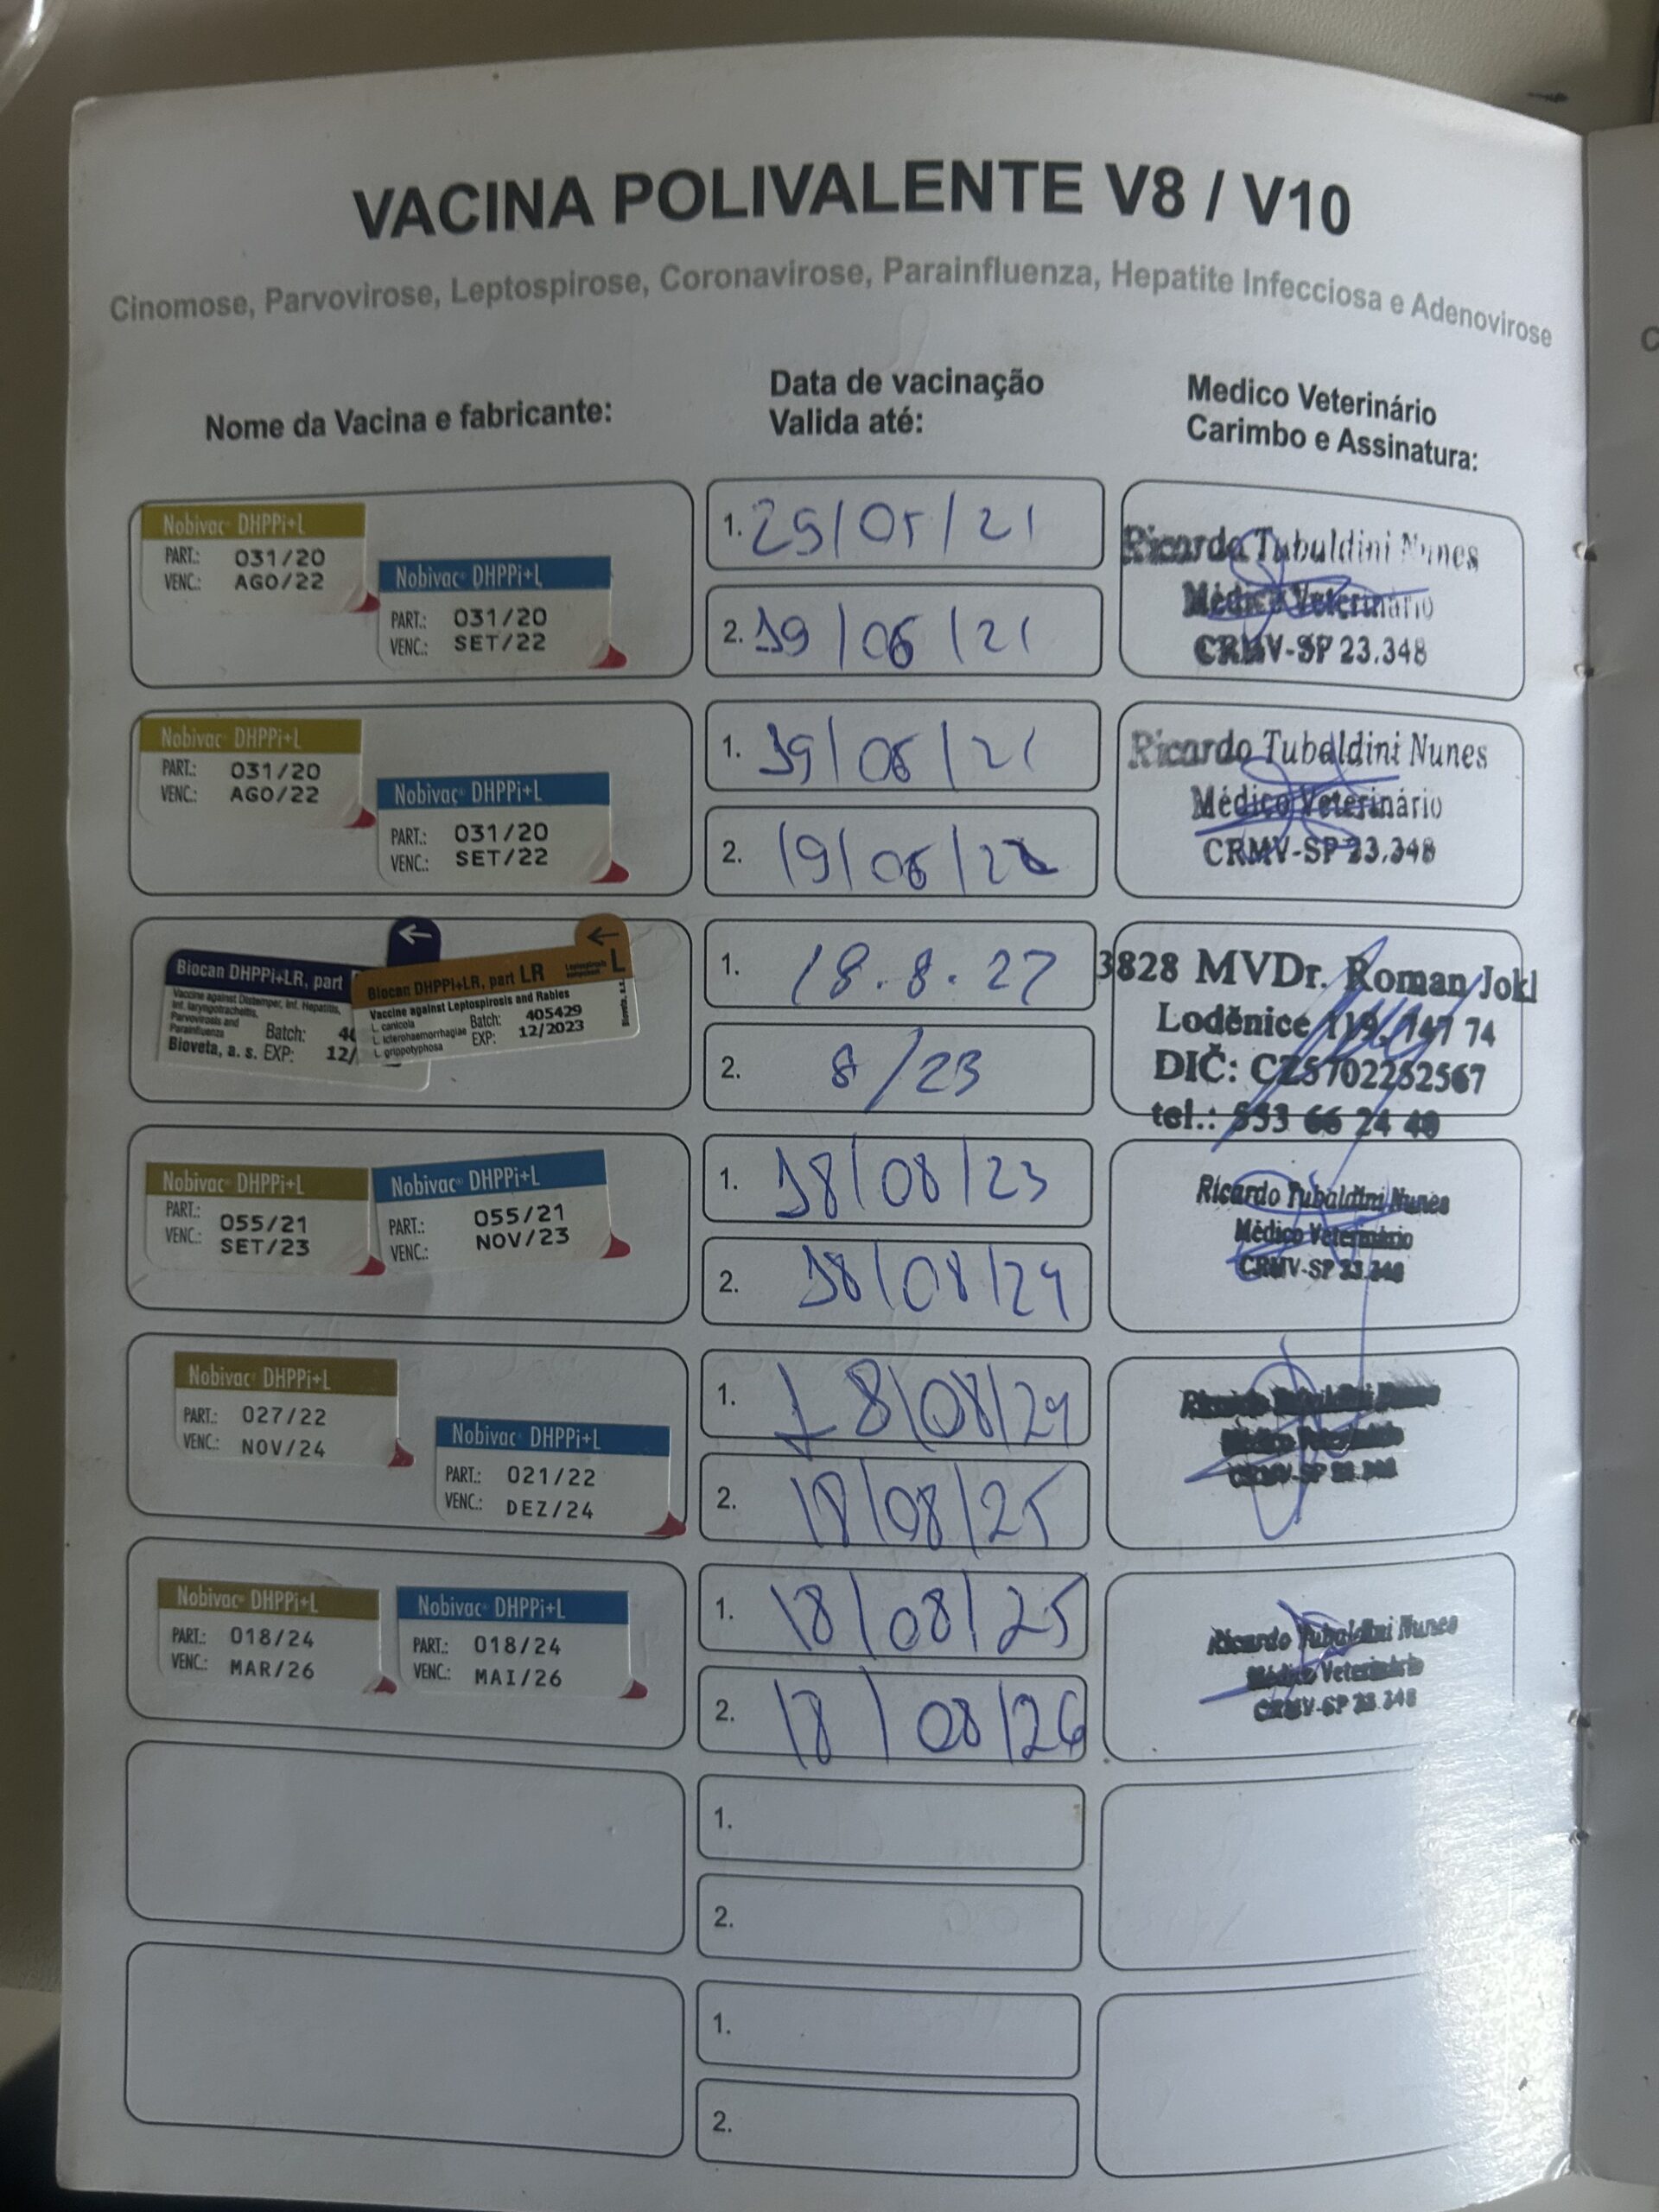 VACINA POLIVALENTE V8 / V10
Cinomose, Parvovirose, Leptospirose, Coronavirose, Parainfluenza, Hepatite Infecciosa e Adenovirose
Nome da Vacina e fabricante:
Data de vacinação
Valida até:
Medico Veterinário
Carimbo e Assinatura:
Nobivac® DHPPi+L
PART.: 031/20
VENC.: AGO/22
Nobivac® DHPPi+L
PART.: 031/20
VENC.: SET/22
1. 29/05/21
2. 19/06/21
Ricardo Tubaldini Nunes
Médico Veterinário
CRMV-SP 23.348
Nobivac® DHPPi+L
PART.: 031/20
VENC.: AGO/22
Nobivac® DHPPi+L
PART.: 031/20
VENC.: SET/22
1. 19/06/21
2. 19/06/22
Ricardo Tubaldini Nunes
Médico Veterinário
CRMV-SP 23.348
Biocan DHPPi+LR, part
Vaccine against Distemper, Inf. Hepatitis,
Inf. laryngotracheitis,
Parvovirosis and
Parainfluenza
Batch: 40
Bioveta, a. s. EXP: 12/
Biocan DHPPi+LR, part LR
L
Vaccine against Leptospirosis and Rabies
L. canicola
L. icterohaemorrhagiae
L. grippotyphosa
Batch: 405429
EXP: 12/2023
Bioveta, a.s.
1. 18.8.22
2. 8/23
3828 MVDr. Roman Jokl
Loděnice 119, 747 74
DIČ: CZ5702252567
tel.: 553 66 24 40
Nobivac® DHPPi+L
PART.: 055/21
VENC.: SET/23
Nobivac® DHPPi+L
PART.: 055/21
VENC.: NOV/23
1. 18/08/23
2. 18/08/24
Ricardo Tubaldini Nunes
Médico Veterinário
CRMV-SP 23.348
Nobivac® DHPPi+L
PART.: 027/22
VENC.: NOV/24
Nobivac® DHPPi+L
PART.: 021/22
VENC.: DEZ/24
1. 18/08/24
2. 18/08/25
Ricardo Tubaldini Nunes
Médico Veterinário
CRMV-SP 23.348
Nobivac® DHPPi+L
PART.: 018/24
VENC.: MAR/26
Nobivac® DHPPi+L
PART.: 018/24
VENC.: MAI/26
1. 18/08/25
2. 18/08/26
Ricardo Tubaldini Nunes
Médico Veterinário
CRMV-SP 23.348
1.
2.
1.
2.